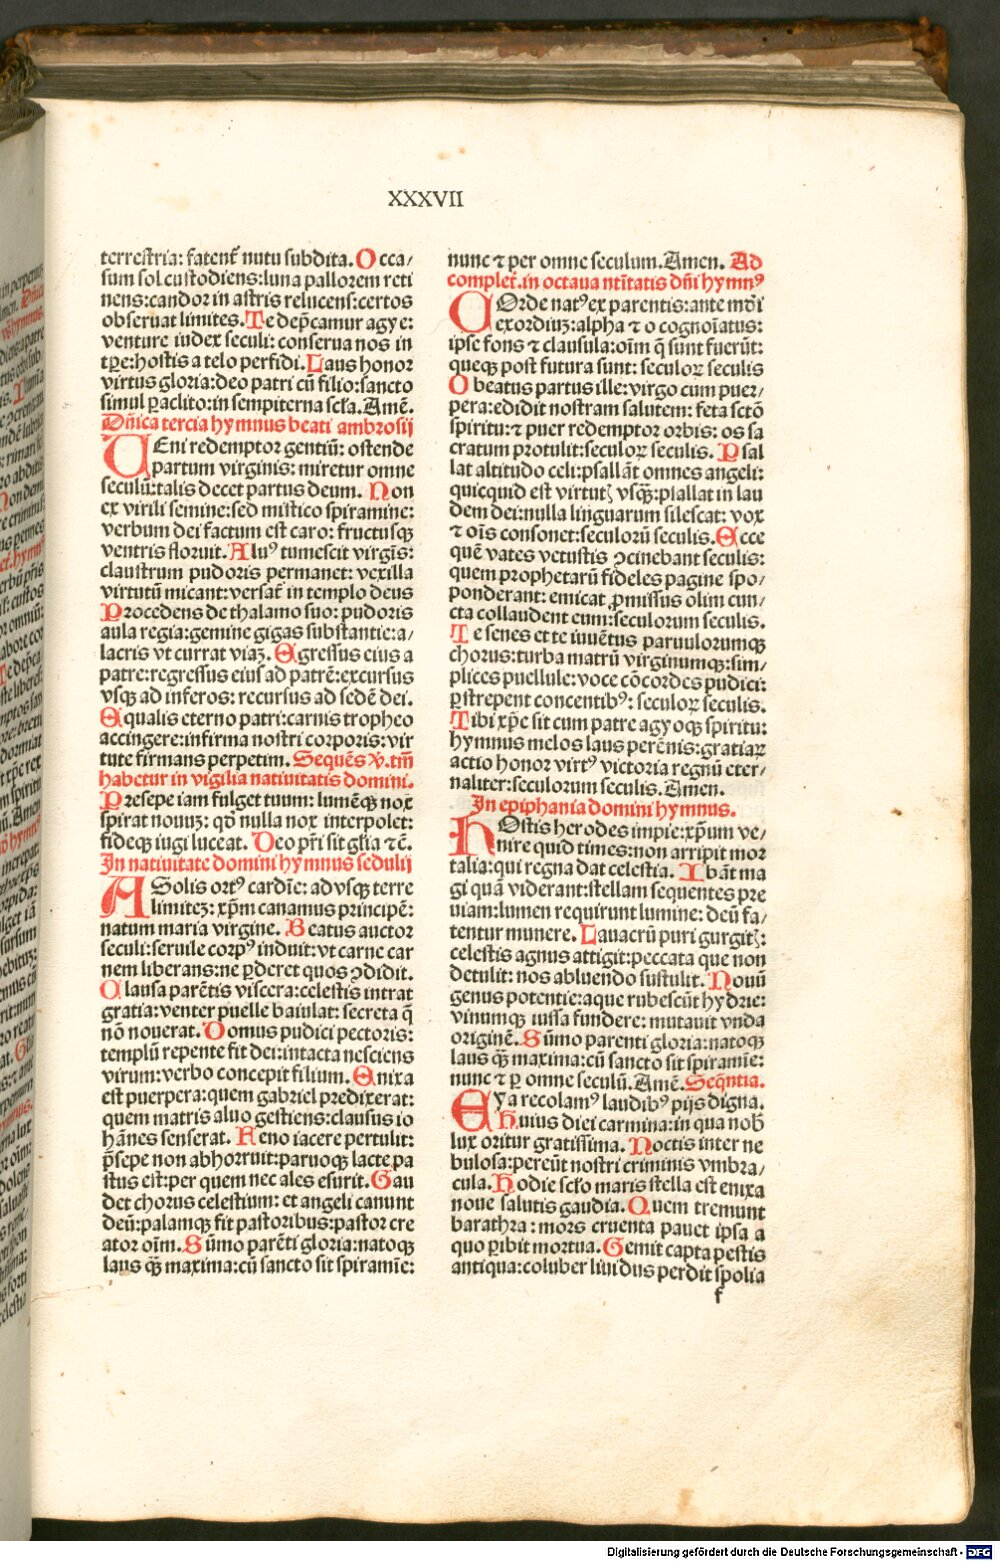 XXXVII
terrestria: fatent᷑ nutu subdita. Occa/
sum sol custodiens: luna pallorem reti
nens: candor in astris relucens: certos
obseruat limites. Te dep̄camur agye:
venture iudex seculi: conserua nos in
tꝑe: hostis a telo perfidi. Laus honor
virtus gloria: deo patri cū filio: sancto
simul ꝑaclito: in sempiterna scl̄a. Amē.
Dn̄ica tercia hymnus beati ambrosij
UEni redemptor gentiū: ostende
partum virginis: miretur omne
seculū: talis decet partus deum. Non
ex virili semine: sed mistico spiramine:
verbum dei factum est caro: fructusqꝫ
ventris floruit. Aluꝰ tumescit virgīs:
claustrum pudoris permanet: vexilla
virtutū micant: versat᷑ in templo deus
Procedens de thalamo suo: pudoris
aula regia: gemine gigas substantie: a/
lacris vt currat viaꝫ. Egressus eius a
patre: regressus eius ad patrē: excursus
vsqꝫ ad inferos: recursus ad sedē dei.
Equalis eterno patri: carnis tropheo
accingere: infirma nostri corporis: vir
tute firmans perpetim. Sequēs v̄. tm̄
habetur in vigilia natiuitatis domini.
Presepe iam fulget tuum: lumēqꝫ nox
spirat nouuꝫ: qđ nulla nox interpolet:
fideqꝫ iugi luceat. Deo pr̄i sit gl̄ia ⁊c̄.
In natiuitate domini hymnus sedulij
ASolis ortꝰ cardīe: ad vsqꝫ terre
limiteꝫ: xp̄m canamus principē:
natum maria virgine. Beatus auctor
seculi: seruile corpꝰ induit: vt carne car
nem liberans: ne ꝑderet quos ꝯdidit.
Clausa parētis viscera: celestis intrat
gratia: venter puelle baiulat: secreta q̄
nō nouerat. Domus pudici pectoris:
templū repente fit dei: intacta nesciens
virum: verbo concepit filium. Enixa
est puerpera: quem gabriel predixerat:
quem matris aluo gestiens: clausus io
hānes senserat. Feno iacere pertulit:
p̄sepe non abhorruit: paruoqꝫ lacte pa
stus est: per quem nec ales esurit. Gau
det chorus celestium: et angeli canunt
deū: palamqꝫ fit pastoribus: pastor cre
ator oīm. Sūmo parēti gloria: natoqꝫ
laus qꝫ maxima: cū sancto sit spiramīe:
nunc ⁊ per omne seculum. Amen. Ad
complet᷑. in octaua nt̄itatis dn̄i hymnꝰ
COrde natꝰ ex parentis: ante mūdi
exordiuꝫ: alpha ⁊ o cognoīatus:
ipse fons ⁊ clausula: oīm q̄ sunt fuerūt:
queqꝫ post futura sunt: seculoꝝ seculis
O beatus partus ille: virgo cum puer/
pera: edidit nostram salutem: feta sctō
spiritu: ⁊ puer redemptor orbis: os sa
cratum protulit: seculoꝝ seculis. Psal
lat altitudo celi: psallāt omnes angeli:
quicquid est virtutꝭ vsqꝫ: psallat in lau
dem dei: nulla linguarum silescat: vox
⁊ oīs consonet: seculorū seculis. Ecce
quē vates vetustis ꝯcinebant seculis:
quem prophetarū fideles pagine spo/
ponderant: emicat ꝓmissus olim cun/
cta collaudent eum: seculorum seculis.
Te senes et te iuuētus paruulorumqꝫ
chorus: turba matrū virginumqꝫ: sim/
plices puellule: voce cōcordes pudici:
ꝑstrepent concentibꝰ: seculoꝝ seculis.
Tibi xp̄e sit cum patre agyoqꝫ spiritu:
hymnus melos laus perēnis: gratiaꝝ
actio honor virtꝰ victoria regnū eter/
naliter: seculorum seculis. Amen.
In epiphania domini hymnus.
HOstis herodes impie: xp̄um ve/
nire quid times: non arripit mor
talia: qui regna dat celestia. Ibāt ma
gi quā viderant: stellam sequentes pre
uiam: lumen requirunt lumine: deū fa/
tentur munere. Lauacrū puri gurgitꝭ:
celestis agnus attigit: peccata que non
detulit: nos abluendo sustulit. Nouū
genus potentie: aque rubescūt hydrie:
vinumqꝫ iussa fundere: mutauit vnda
originē. Sūmo parenti gloria: natoqꝫ
laus qꝫ maxima: cū sancto sit spiramīe:
nunc ⁊ ꝑ omne seculū. Amē. Seqn̄tia.
EYa recolamꝰ laudibꝰ pijs digna.
Huius diei carmina: in qua nob̄
lux oritur gratissima. Noctis inter ne
bulosa: pereūt nostri criminis vmbra/
cula. Hodie sclo̅ maris stella est enixa
noue salutis gaudia. Quem tremunt
barathra: mors cruenta pauet ipsa a
quo ꝑibit mortua. Gemit capta pestis
antiqua: coluber liuidus perdit spolia
f
Digitalisierung gefördert durch die Deutsche Forschungsgemeinschaft - DFG